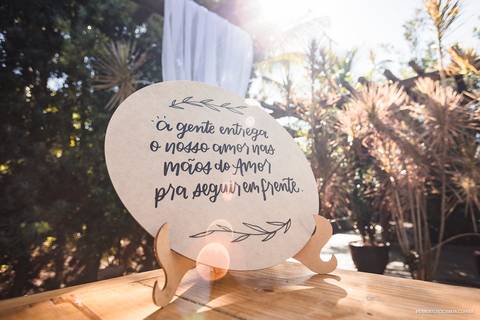 "a gente entrega
o nosso amor nas
mãos do Amor
pra seguir em frente.